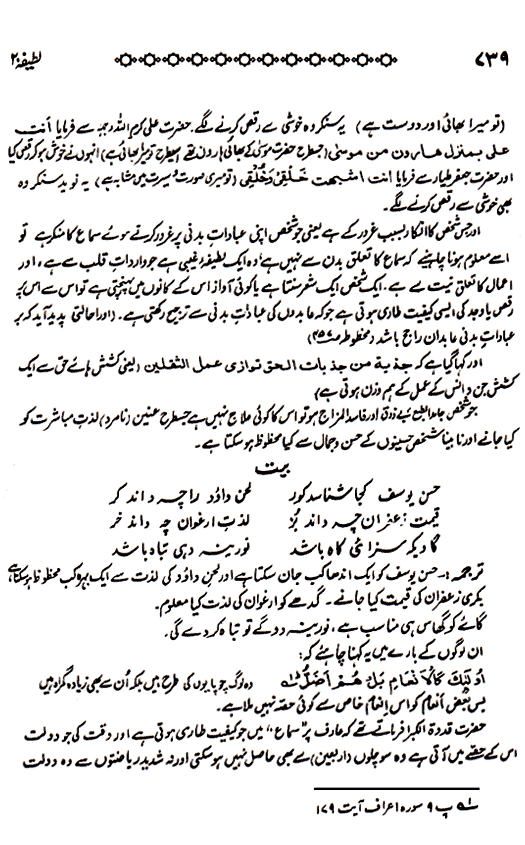 ۷۳۹ لطیفہ ۲۰
(تو میرا بھائی اور دوست ہے) یہ سنکر وہ خوشی سے رقص کرنے لگے۔ حضرت علی کرم اللہ وجہہ سے فرمایا أنت
علی بمنزل ھارون من موسیٰ (جسطرح حضرت موسیٰ کے بھائی ہارون تھے اسیطرح تو میرا بھائی ہے) انہوں نے خوش ہو کر رقص کیا
اور حضرت جعفر طیار سے فرمایا انت اشبھت خَلْقِیْ وَخُلُقِیْ (تو میری صورت و سیرت میں مشابہ ہے) یہ نوید سنکر وہ
بھی خوشی سے رقص کرنے لگے۔
اور جس شخص کا انکار بسبب غرور کے ہے یعنی جو شخص اپنی عبادات بدنی پر غرور کرتے ہوئے سماع کا منکر ہے تو
اسے معلوم ہونا چاہیئے کہ سماع کا تعلق بدن سے نہیں ہے وہ ایک لطیفۂ غیبی ہے جو واردات قلب سے ہے، اور
اعمال کا تعلق نیت سے ہے۔ ایک شخص ایک شعر سنتا ہے یا کوئی آواز اس کے کانوں میں پہنچتی ہے تو اس سے اس پر
رقص یا وجد کی ایسی کیفیت طاری ہوتی ہے جو کہ عابدوں کی عباداتِ بدنی سے ترجیح رکھتی ہے۔ (اور احالتی پدید آید کہ بر
عباداتِ بدنی عابدان راجح باشد (مخطوطہ ص ۴۵۷)
اور کہا گیا ہے کہ جذبة من جذبات الحق توازی عمل الثقلین (یعنی کشش ہائے حق سے ایک
کشش جن و انس کے عمل کے ہم وزن ہوتی ہے)
جو شخص جامد الطبع بے ذوق اور فاسد المزاج ہو تو اس کا کوئی علاج نہیں ہے جسطرح عنین (نامرد) لذتِ مباشرت کو
کیا جانے اور نابینا شخص حسینوں کے حسن و جمال سے کیا محظوظ ہو سکتا ہے۔
بیت
حسن یوسف کجا شناسد کور لحن داؤد را چہ داند کر
قیمت زعفران چہ داند بز لذت ارغوان چہ داند خر
گاؤ یکہ سزائی کاہ باشد نورینہ دہی تباہ باشد
ترجمہ:۔ حسن یوسف کو ایک اندھا کب جان سکتا ہے اور لحنِ داؤد کی لذت سے ایک بہرہ کب محظوظ ہو سکتا ہے
بکری زعفران کی قیمت کیا جانے۔ گدھے کو ارغوان کی لذت کیا معلوم۔
گائے کو گھاس ہی مناسب ہے، نورینہ دو گے تو تباہ کر دے گی۔
ان لوگوں کے بارے میں یہ کہنا چاہئے کہ:
اُولٰٓئِکَ کَالْاَنْعَامِ بَلْ ھُمْ اَضَلُّ ؎۱ وہ لوگ چوپایوں کی طرح ہیں بلکہ اُن سے بھی زیادہ گمراہ ہیں
بس بعض انعام کو اس انعام خاص سے کوئی حصہ نہیں ملا ہے۔
حضرت قدوۃ الکبرا فرماتے تھے کہ عارف پر "سماع" میں جو کیفیت طاری ہوتی ہے اور وقت کی جو دولت
اس کے حصے میں آتی ہے وہ سو چلوں (اربعین) سے بھی حاصل نہیں ہو سکتی اور نہ شدید ریاضتوں سے وہ دولت
؎۱ پ ۹ سورہ اعراف آیت ۱۷۹